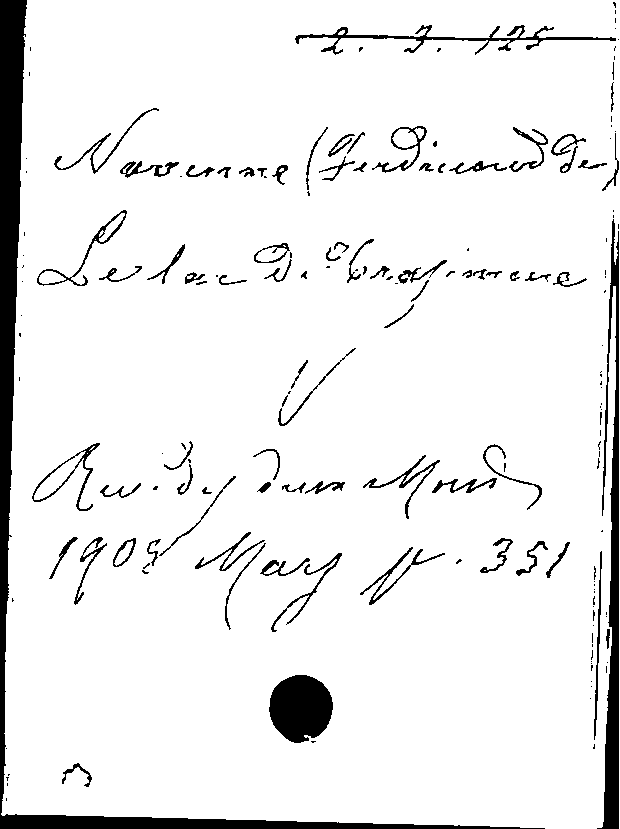 2. 3. 125
Navenne (Ferdinand de)
Le lac de Trasimene
V
Rev. des deux Mondes
1908 Mars p. 351